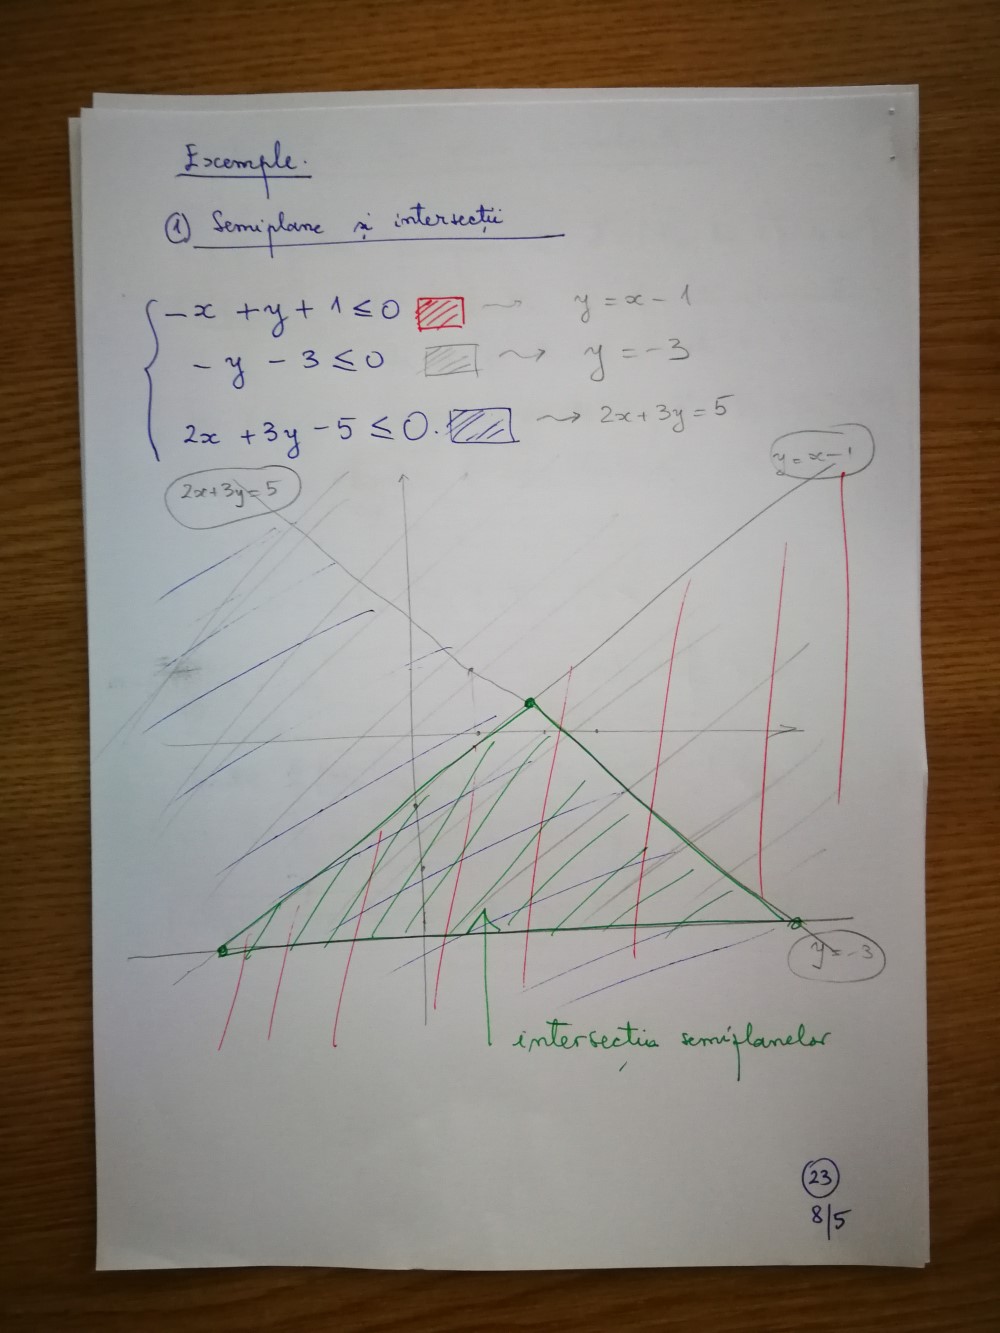 Exemple.
① Semiplane și intersecții
-x + y + 1 ≤ 0 ⇝ y = x - 1
- y - 3 ≤ 0 ⇝ y = -3
2x + 3y - 5 ≤ 0. ⇝ 2x + 3y = 5
y = x - 1
2x+3y=5
y = -3
intersecția semiplanelor
23
8/5